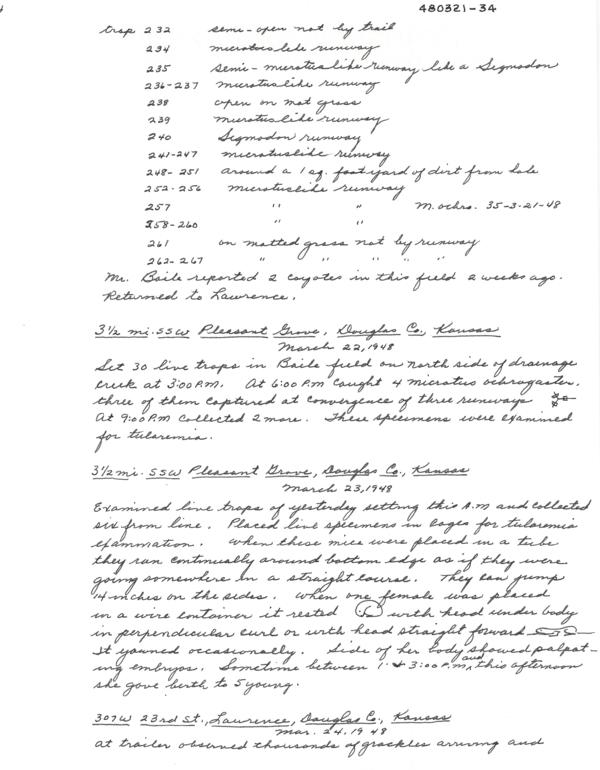 480321-34
trap 232 semi-open not by trail
234 microtus like runway
235 semi-microtus like runway like a Sigmodon
236-237 microtus like runway
238 open on mat grass
239 microtus like runway
240 Sigmodon runway
241-247 microtuslike runway
248-251 around a 1 sq. foot yard of dirt from hole
252-256 microtuslike runway
257 " " M. ochro. 35-3-21-48
258-260 " "
261 on matted grass not by runway
262-267 " " " " "
Mr. Baile reported 2 coyotes in this field 2 weeks ago.
Returned to Lawrence.
3 1/2 mi. SSW Pleasant Grove, Douglas Co., Kansas
March 22, 1948
Set 30 live traps in Baile field on north side of drainage
creek at 3:00 P.M. At 6:00 P.M caught 4 microtus ochrogaster.
three of them captured at convergence of three runways
At 9:00 P.M collected 2 more. These specimens were examined
for tularemia.
3 1/2 mi. SSW Pleasant Grove, Douglas Co., Kansas
March 23, 1948
Examined live traps of yesterday setting this A.M and collected
six from line. Placed live specimens in cages for tularemia
examination. When these mice were placed in a tube
they ran continually around bottom edge as if they were
going somewhere in a straight course. They can jump
14 inches on the sides. When one female was placed
in a wire container it rested with head under body
in perpendicular curl or with head straight forward
It yawned occasionally. Side of her body showed palpat-
ing embryos. Sometime between 1 & 3:00 P.M. and this afternoon
she gave birth to 5 young.
307 W 23rd St., Lawrence, Douglas Co., Kansas
Mar. 24, 1948
at trailer observed thousands of grackles arriving and